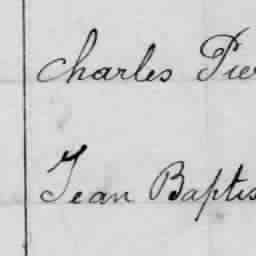 Charles Pier
Jean Baptis